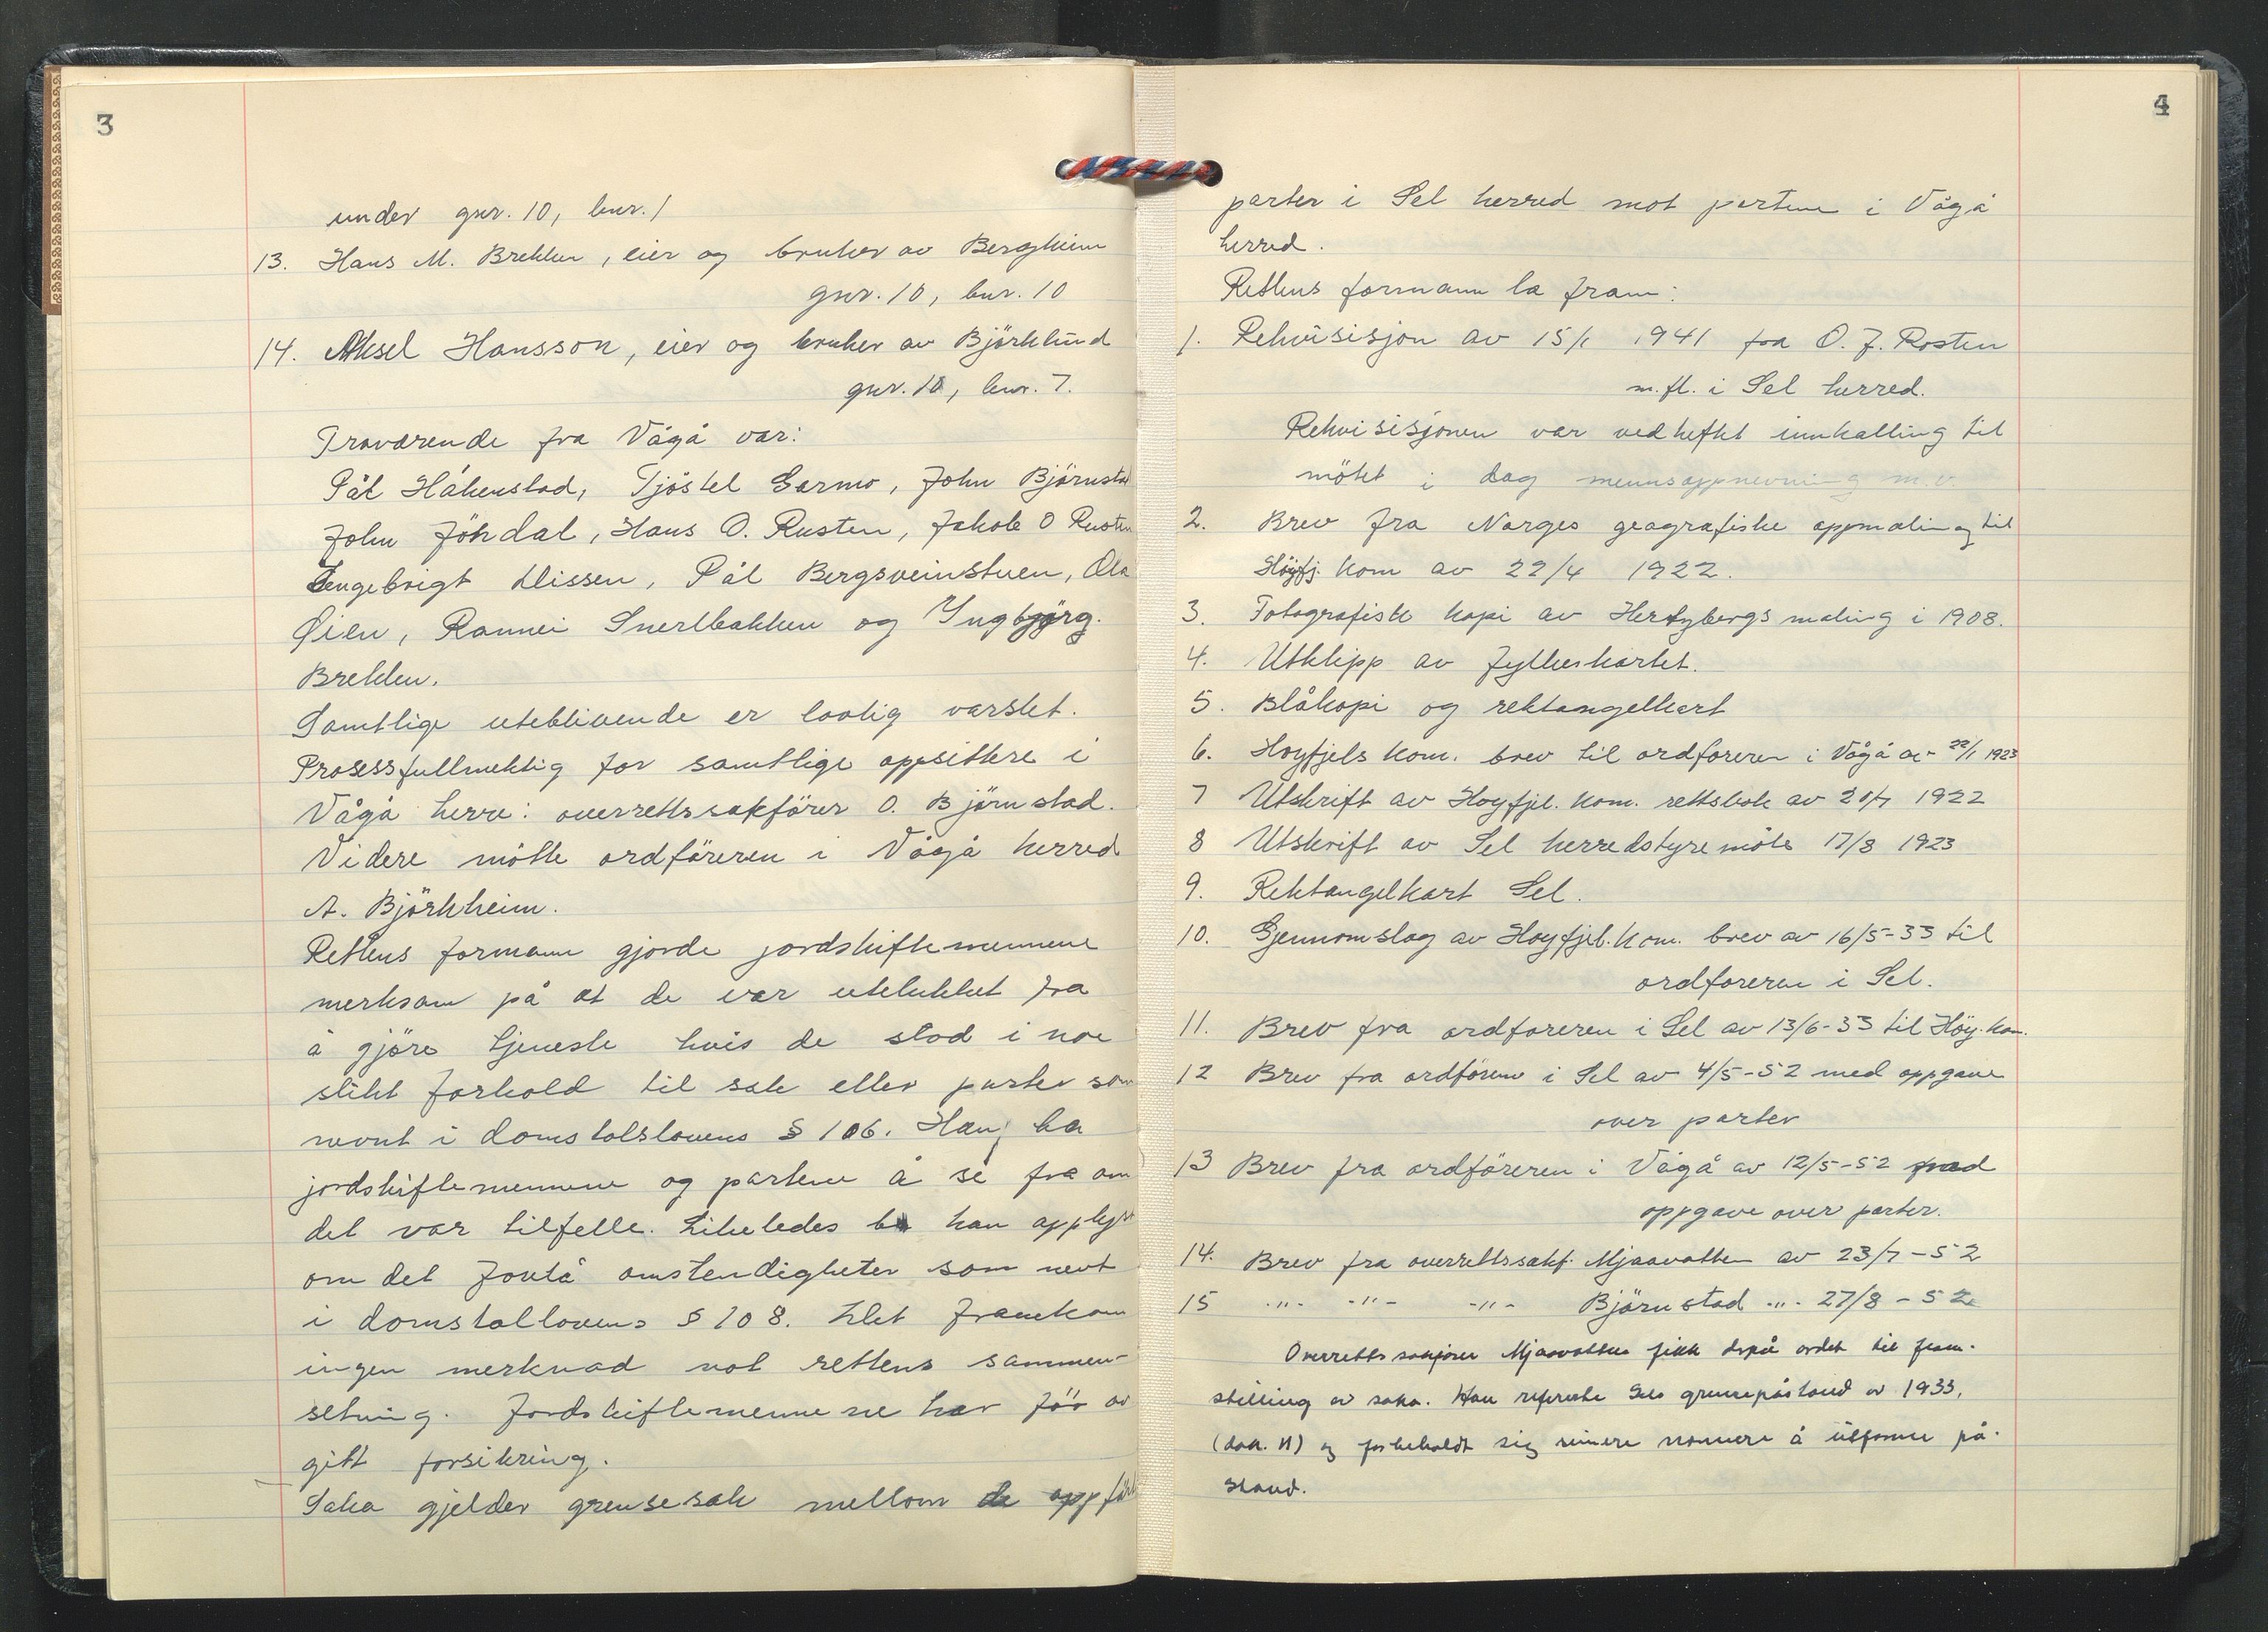 3
under gnr. 10, bnr. 1
13. Hans M. Brekken, eier og bruker av Bergheim
gnr. 10, bnr. 10
14. Aksel Hansson, eier og bruker av Björklund
gnr. 10, bnr. 7.
Fraværende fra Vågå var:
Pål Håkenstad, Tjöstel Garmo, John Björnstad
John Jöndal, Hans O. Rusten, Jakob O Rusten
Engebrigt Nissen, Pål Bergsveinstuen, Ola
Øien, Rannei Snerlbakken og Yngbjørg.
Brekken.
Samtlige uteblivende er lovlig varslet.
Prosessfullmektig for samtlige oppsittere i
Vågå herre: overrettssakförer O. Björnstad.
Videre mötte ordföreren i Vågå herred
A. Björkheim.
Rettens formann gjorde jordskiftemennene
merksam på at de var utelukket fra
å gjöre tjeneste hvis de stod i noe
slikt forhold til sak eller parter som
nevnt i domstolslovens § 106. Han ba
jordskiftemennene og partene å se fra om
det var tilfelle. Likeledes ba han opplyst
om det forelå omstendigheter som nevt
i domstollovens § 108. Det framkom
ingen merknad mot rettens sammen-
setning. Jordskiftemennene har för av
gitt forsikring.
Saka gjelder grensesak mellom de oppför
4
parter i Sel herred mot partene i Vågå
herred.
Rettens formann la fram:
1. Rekvisisjon av 15/1 1941 fra O. J. Rosten
m.fl. i Sel herred.
Rekvisisjonen var vedheftet innkalling til
mötet i dag mennsoppnevning m.v.
2. Brev fra Norges geografiske oppmaling til
Höyfj. kom av 22/4 1922.
3. Fotografisk kopi av Hertzbergs maling i 1908.
4. Utklipp av fylkeskartet.
5. Blåkopi og rektangelkart
6. Hoyfjels kom. brev til ordforeren i Vågå av 22/1 1923
7 Utskrift av Hoyfjel. kom. rettsbok av 20/7 1922
8 Utskrift av Sel herredstyremöte 17/8 1923
9. Rektangelkart Sel.
10. Gjennomslag av Hoyfjel. kom. brev av 16/5-33 til
ordforeren i Sel.
11. Brev fra ordforeren i Sel av 13/6-33 til Höy. kom.
12 Brev fra ordföreren i Sel av 4/5-52 med oppgave
over parter
13 Brev fra ordföreren i Vågå av 12/5-52 med
oppgave over parter.
14. Brev fra overrettssakf. Mjaavatten av 23/7-52
15 -"- -"- -"- Björnstad -"- 27/8-52
Overrettssakförer Mjaavatten fikk derpå ordet til fram-
stilling av saka. Han refererte Sels grensepåstand av 1933,
(dok. 11) og forbeholdt sig seinere nærmere å utforme på-
stand.